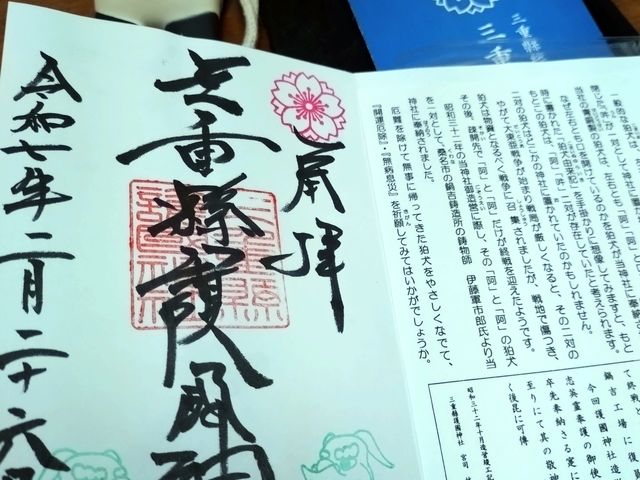 奉拝
三重縣護國神
令和七年二月二十六日
三重縣
三重
一般的な狛犬は、
閉じた「吽」が一対として神社に奉納
当社の青銅製の狛犬は、左右とも「阿」「阿」と
なぜ左右とも口を開けているのかを狛犬が当神社に奉納さ
時に書かれた「狛犬由来記」を手掛かりに想像してみますと、もと
もとこの狛犬はどこかの神社に「阿」「吽」二対が存在していたと考えられます。
やがて大東亜戦争が始まり戦局が厳しくなると、その二対の
二対の狛犬は物資となるべく戦争に召集されましたが、戦地で傷つき、
その後、疎開先で「阿」と「阿」だけが終戦を迎えたようです。
昭和三十二年の当神社御造営に際し、その「阿」と「阿」の狛犬
を一対として、桑名市の鍋吉鋳造所の鋳物師 伊藤軍市郎氏より当
神社に奉納されました。
厄難を除けて無事に帰ってきた狛犬をやさしくなでて、
『開運厄除』・『無病息災』を祈願してみてはいかがでしょうか。
て終戦
鍋吉工場に復員
今回護國神社造
志英霊奉護の御使
卒先奉納さる寔に
至りにて其の敬神
く後昆に可傳
昭和三十二年十月造営竣工記
三重縣護國神社 宮司